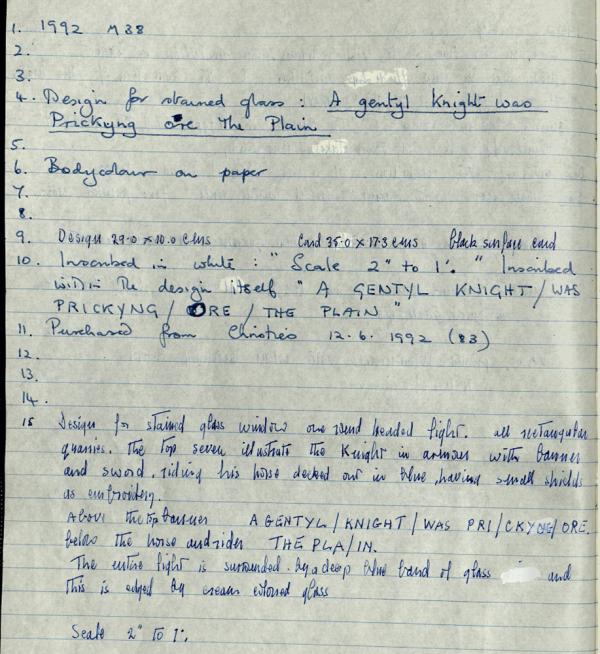 1. 1992 M38
2.
3.
4. Design for stained glass : A gentyl Knight was
Prickyng ore The Plain
5.
6. Bodycolour on paper
7.
8.
9. Design 29.0 x 10.0 cms Card 35.0 x 17.3 cms black surface card
10. Inscribed in white : "Scale 2" to 1'. " Inscribed
within the design itself " A GENTYL KNIGHT / WAS
PRICKYNG / ORE / THE PLAIN "
11. Purchased from Christies 12.6.1992 (83)
12.
13.
14.
15 Design for stained glass window one round headed light. all rectangular
quarries. the top seven illustrate the Knight in armour with banner
and sword, riding his horse decked out in blue, having small shields
as embroidery.
Above the top banner A GENTYL / KNIGHT / WAS PRI / CKYNG / ORE.
below the horse and rider THE PLA / IN.
The entire light is surrounded by a deep blue band of glass and
this is edged by cream colored glass
Scale 2" TO 1'.